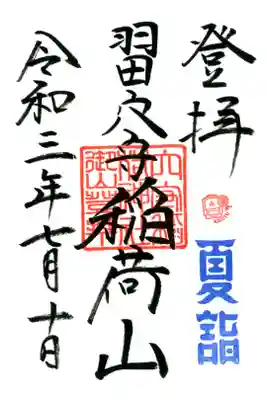 登拝
夏詣
羽田穴守稲荷山
令和三年七月十日